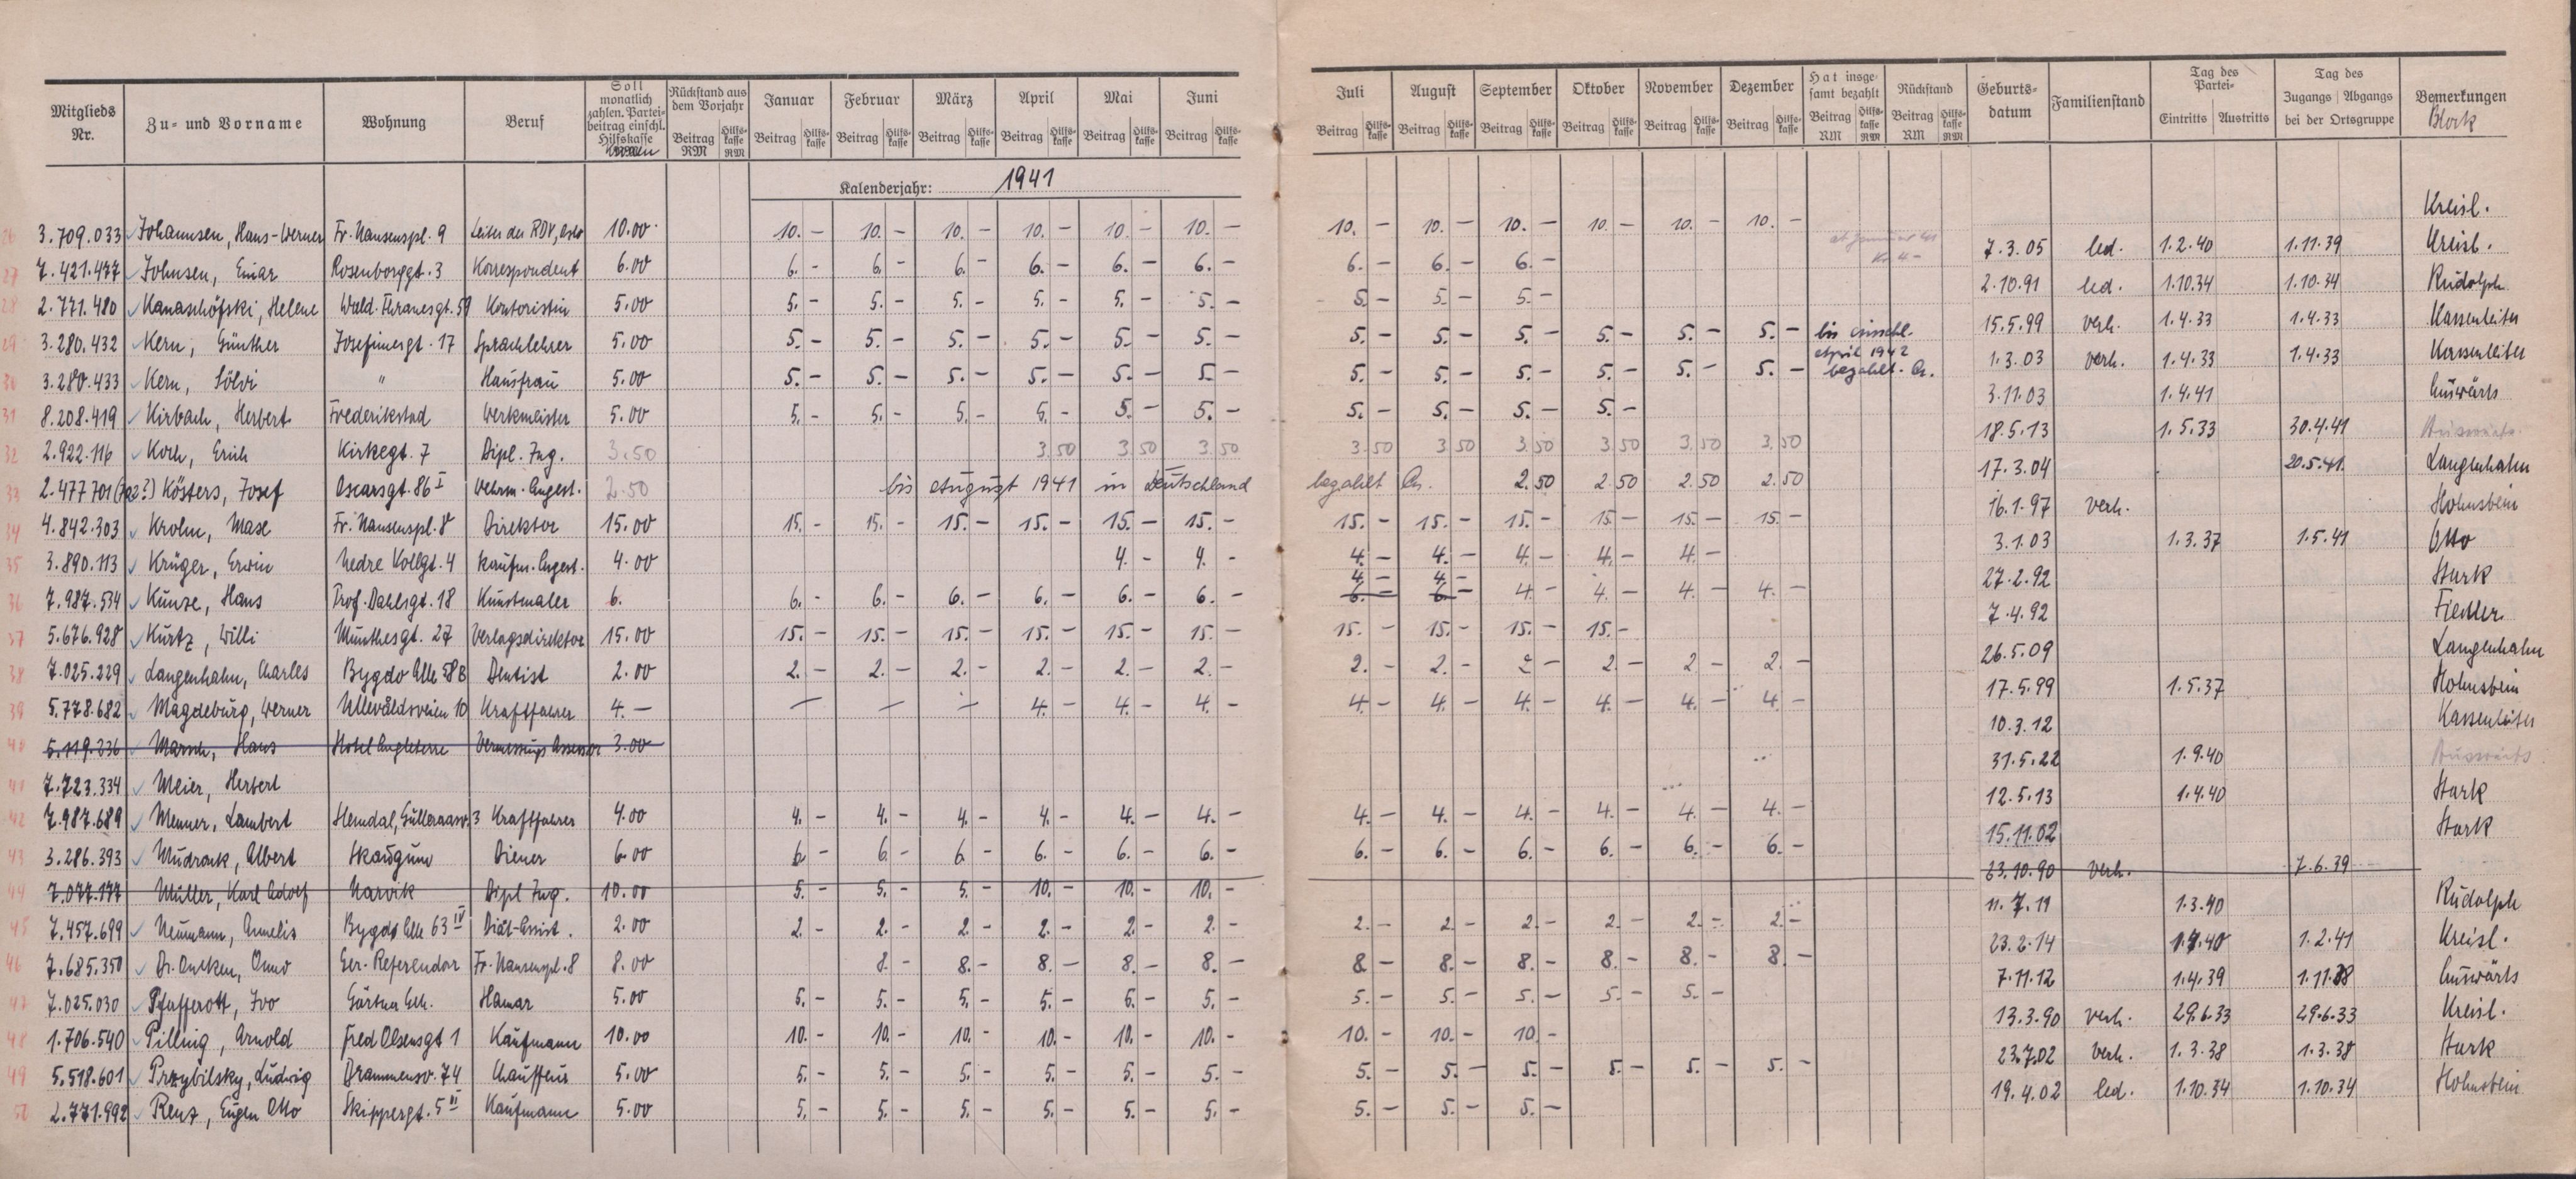 Mitglieds Nr. Zu- und Vorname Wohnung Beruf Soll monatlich zahlen. Partei-beitrag einschl. Hilfskasse Rückstand aus dem Vorjahr Januar Februar März April Mai Juni Juli August September Oktober November Dezember Hat insge-samt bezahlt Rückstand Geburts-datum Familienstand Tag des Partei- Tag des Bemerkungen
Beitrag RM Hilfs-kasse RM Beitrag Hilfs-kasse Beitrag Hilfs-kasse Beitrag Hilfs-kasse Beitrag Hilfs-kasse Beitrag Hilfs-kasse Beitrag Hilfs-kasse Beitrag Hilfs-kasse Beitrag Hilfs-kasse Beitrag Hilfs-kasse Beitrag Hilfs-kasse Beitrag Hilfs-kasse Beitrag Hilfs-kasse Beitrag RM Hilfs-kasse RM Beitrag RM Hilfs-kasse RM Eintritts Austritts Zugangs Abgangs bei der Ortsgruppe Block
Kalenderjahr: 1941
26 3.709.033 Johannsen, Hans-Werner Fr. Nansenspl. 9 Leiter der RDV, Oslo 10.00 10.- 10.- 10.- 10.- 10.- 10.- 10.- 10.- 10.- 10.- 10.- 10.- Kreisl.
27 7.421.477 Johnsen, Einar Rosenborggt. 3 Korrespondent 6.00 6.- 6.- 6.- 6.- 6.- 6.- 6.- 6.- 6.- 7.3.05 led. 1.2.40 1.11.39 Kreisl.
28 2.771.480 Kanaschöfski, Helene Wald. Thranesgt. 59 Kontoristin 5.00 5.- 5.- 5.- 5.- 5.- 5.- 5.- 5.- 5.- 2.10.91 led. 1.10.34 1.10.34 Rudolph
29 3.280.432 Kern, Günther Josefinesgt. 17 Sprachlehrer 5.00 5.- 5.- 5.- 5.- 5.- 5.- 5.- 5.- 5.- 5.- 5.- 5.- bis einschl. 15.5.99 verh. 1.4.33 1.4.33 Kassenleiter
april 1942
30 3.280.433 Kern, Sölvi " Hausfrau 5.00 5.- 5.- 5.- 5.- 5.- 5.- 5.- 5.- 5.- 5.- 5.- 5.- bezahlt. 1.3.03 verh. 1.4.33 1.4.33 Kassenleiter
31 8.208.419 Kirbach, Herbert Frederikstad Werkmeister 5.00 5.- 5.- 5.- 5.- 5.- 5.- 5.- 5.- 5.- 5.- 3.11.03 1.4.41 Auswärts
32 2.922.116 Koch, Erich Kirkegt. 7 Dipl. Ing. 3.50 3.50 3.50 3.50 3.50 3.50 3.50 3.50 3.50 3.50 18.5.13 1.5.33 30.4.41 Auswärts
33 2.477701(702?) Kösters, Josef Oscarsgt. 86 I Wehrm. Angest. 2.50 bis August 1941 in Deutschland bezahlt 2.50 2.50 2.50 2.50 17.3.04 20.5.41 Langenhahn
34 4.842.303 Krohn, Mase Fr. Nansenspl. 8 Direktor 15.00 15.- 15.- 15.- 15.- 15.- 15.- 15.- 15.- 15.- 15.- 15.- 15.- 16.1.97 verh. Hohnsbein
35 3.890.113 Krüger, Erwin Nedre Vollgt. 4 kaufm. Angest. 4.00 4.- 4.- 4.- 4.- 4.- 4.- 4.- 3.1.03 1.3.37 1.5.41 Otto
4.- 4.-
36 7.987.534 Kunze, Hans Prof. Dahlsgt. 18 Kunstmaler 6. 6.- 6.- 6.- 6.- 6.- 6.- 6.- 6.- 4.- 4.- 4.- 4.- 27.2.92 Stark
37 5.676.928 Kurtz, Willi Munthesgt. 27 Verlagsdirektor 15.00 15.- 15.- 15.- 15.- 15.- 15.- 15.- 15.- 15.- 15.- 7.4.92 Fiedler
38 7.025.229 Langenhahn, Charles Bygdo Alle 58B Dentist 2.00 2.- 2.- 2.- 2.- 2.- 2.- 2.- 2.- 2.- 2.- 2.- 2.- 26.5.09 Langenhahn
39 5.778.682 Magdeburg, Werner Ullevåldsveien 10 Kraftfahrer 4.- - - - 4.- 4.- 4.- 4.- 4.- 4.- 4.- 4.- 4.- 17.5.99 1.5.37 Hohnsbein
40 5.119.236 Marsch, Hans Hotel Angleterre Vermessungs Assessor 3.00 10.3.12 Kassenleiter
41 7.723.334 Meier, Herbert 31.5.22 1.9.40 Auswärts
42 7.987.689 Menner, Lambert Slemdal, Gulleraasv. 3 Kraftfahrer 4.00 4.- 4.- 4.- 4.- 4.- 4.- 4.- 4.- 4.- 4.- 4.- 4.- 12.5.13 1.4.40 Stark
43 3.286.393 Mudrack, Albert Skaugum Diener 6.00 6.- 6.- 6.- 6.- 6.- 6.- 6.- 6.- 6.- 6.- 6.- 6.- 15.11.02 Stark
44 7.077.177 Müller, Karl Adolf Narvik Dipl Ing. 10.00 5.- 5.- 5.- 10.- 10.- 10.- 23.10.90 verh. 7.6.39
45 7.457.699 Neumann, Annelis Bygdo Alle 63 IV Diät-Assist. 2.00 2.- 2.- 2.- 2.- 2.- 2.- 2.- 2.- 2.- 2.- 2.- 2.- 11.7.11 1.3.40 Rudolph
46 7.685.350 Dr. Oncken, Onno Ger. Referendar Fr. Nansenspl. 8 8.00 8.- 8.- 8.- 8.- 8.- 8.- 8.- 8.- 8.- 8.- 8.- 23.2.14 1.7.40 1.2.41 Kreisl.
47 7.025.030 Pfafferott, Ivo Gärtner Geh. Hamar 5.00 5.- 5.- 5.- 5.- 5.- 5.- 5.- 5.- 5.- 5.- 5.- 7.11.12 1.4.39 1.11.38 Auswärts
48 1.706.540 Pilling, Arnold Fred Olsensgt 1 Kaufmann 10.00 10.- 10.- 10. 10.- 10.- 10.- 10.- 10.- 10.- 13.3.90 verh. 29.6.33 29.6.33 Kreisl.
49 5.518.601 Przybilsky, Ludwig Drammensv. 74 Chauffeur 5.00 5.- 5.- 5.- 5.- 5.- 5.- 5.- 5.- 5.- 5.- 5.- 5.- 23.7.02 verh. 1.3.38 1.3.38 Stark
50 2.771.992 Renz, Eugen Otto Skippergt. 5 II Kaufmann 5.00 5.- 5.- 5.- 5.- 5.- 5.- 5.- 5.- 5.- 19.4.02 led. 1.10.34 1.10.34 Hohnsbein